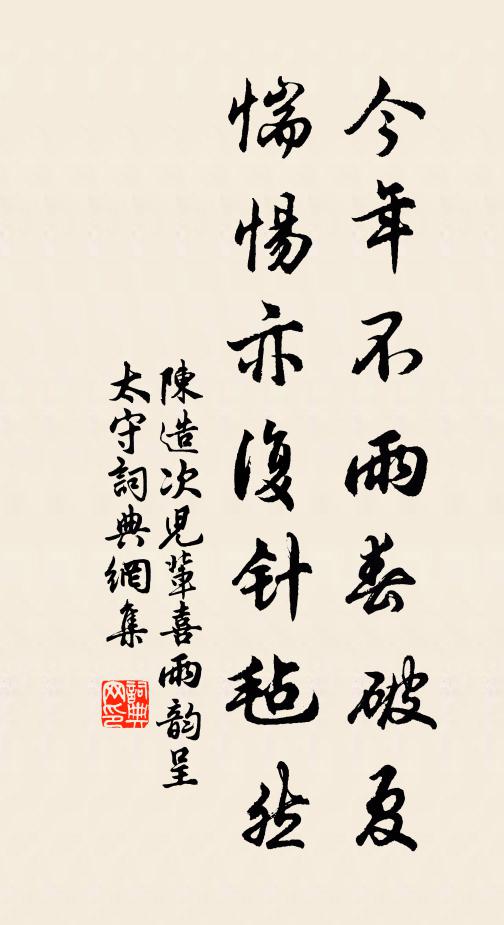 今年不雨春破夏
惴惕亦復针毡然
陳造次児輩喜雨韵呈
太守詞典網集
詞典
网印